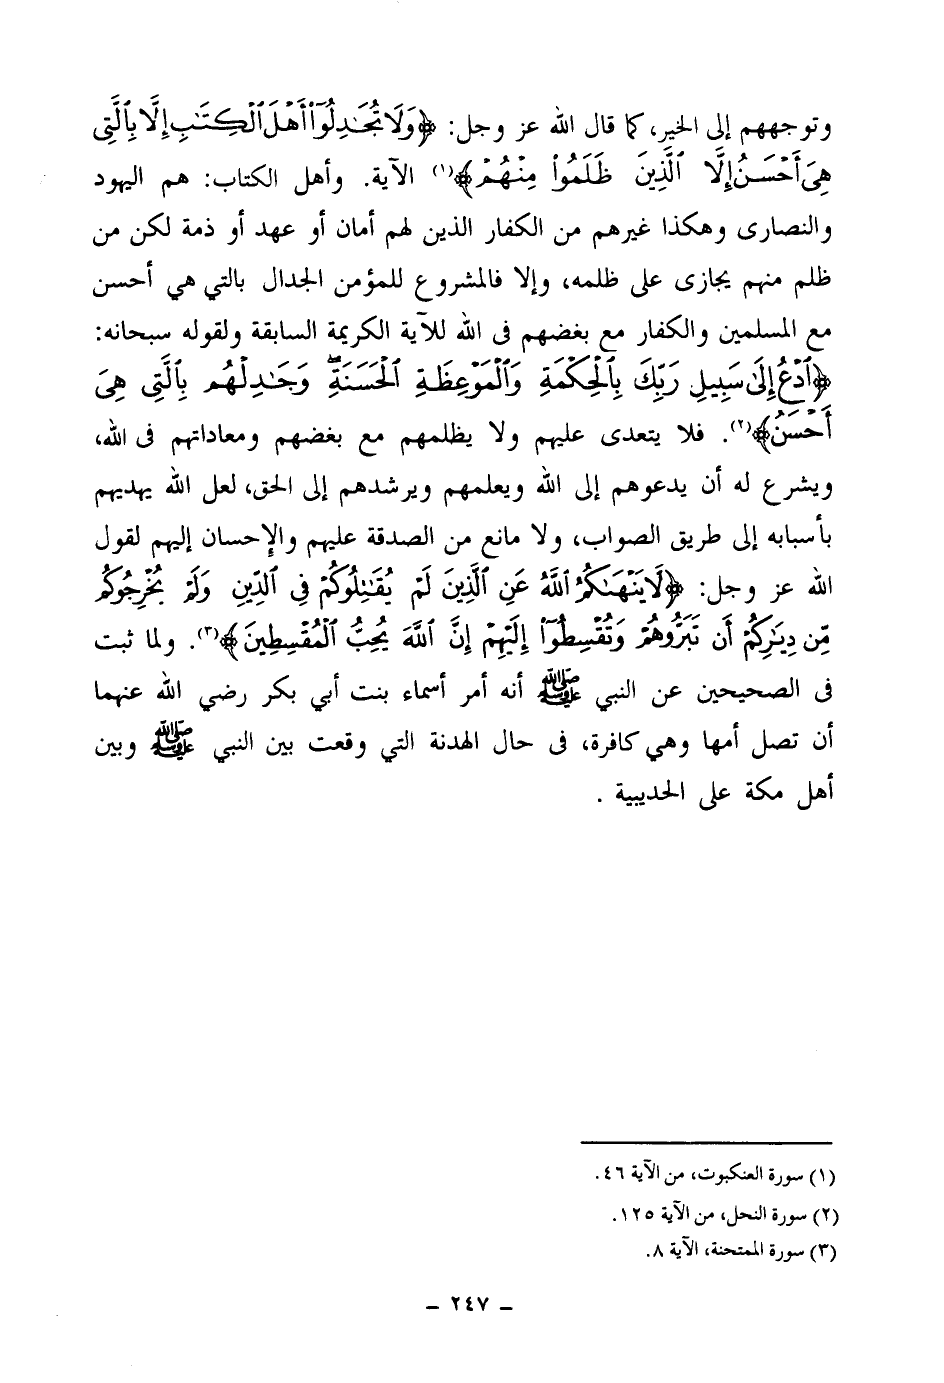 وتوجههم إلى الخير، كما قال الله عز وجل: ﴿وَلَا تُجَٰدِلُوٓا۟ أَهْلَ ٱلْكِتَٰبِ إِلَّا بِٱلَّتِى
هِىَ أَحْسَنُ إِلَّا ٱلَّذِينَ ظَلَمُوا۟ مِنْهُمْ﴾(١) الآية. وأهل الكتاب: هم اليهود
والنصارى وهكذا غيرهم من الكفار الذين لهم أمان أو عهد أو ذمة لكن من
ظلم منهم يجازى على ظلمه، وإلا فالمشروع للمؤمن الجدال بالتي هي أحسن
مع المسلمين والكفار مع بغضهم فى الله للآية الكريمة السابقة ولقوله سبحانه:
﴿ٱدْعُ إِلَىٰ سَبِيلِ رَبِّكَ بِٱلْحِكْمَةِ وَٱلْمَوْعِظَةِ ٱلْحَسَنَةِ ۖ وَجَٰدِلْهُم بِٱلَّتِى هِىَ
أَحْسَنُ﴾(٢). فلا يتعدى عليهم ولا يظلمهم مع بغضهم ومعاداتهم فى الله،
ويشرع له أن يدعوهم إلى الله ويعلمهم ويرشدهم إلى الحق، لعل الله يهديهم
بأسبابه إلى طريق الصواب، ولا مانع من الصدقة عليهم والإحسان إليهم لقول
الله عز وجل: ﴿لَّا يَنْهَىٰكُمُ ٱللَّهُ عَنِ ٱلَّذِينَ لَمْ يُقَٰتِلُوكُمْ فِى ٱلدِّينِ وَلَمْ يُخْرِجُوكُم
مِّن دِيَٰرِكُمْ أَن تَبَرُّوهُمْ وَتُقْسِطُوٓا۟ إِلَيْهِمْ إِنَّ ٱللَّهَ يُحِبُّ ٱلْمُقْسِطِينَ﴾(٣). ولما ثبت
فى الصحيحين عن النبي ﷺ أنه أمر أسماء بنت أبي بكر رضي الله عنهما
أن تصل أمها وهي كافرة، فى حال الهدنة التي وقعت بين النبي ﷺ وبين
أهل مكة على الحديبية .
(١) سورة العنكبوت، من الآية ٤٦.
(٢) سورة النحل، من الآية ١٢٥.
(٣) سورة الممتحنة، الآية ٨.
– ٢٤٧ –